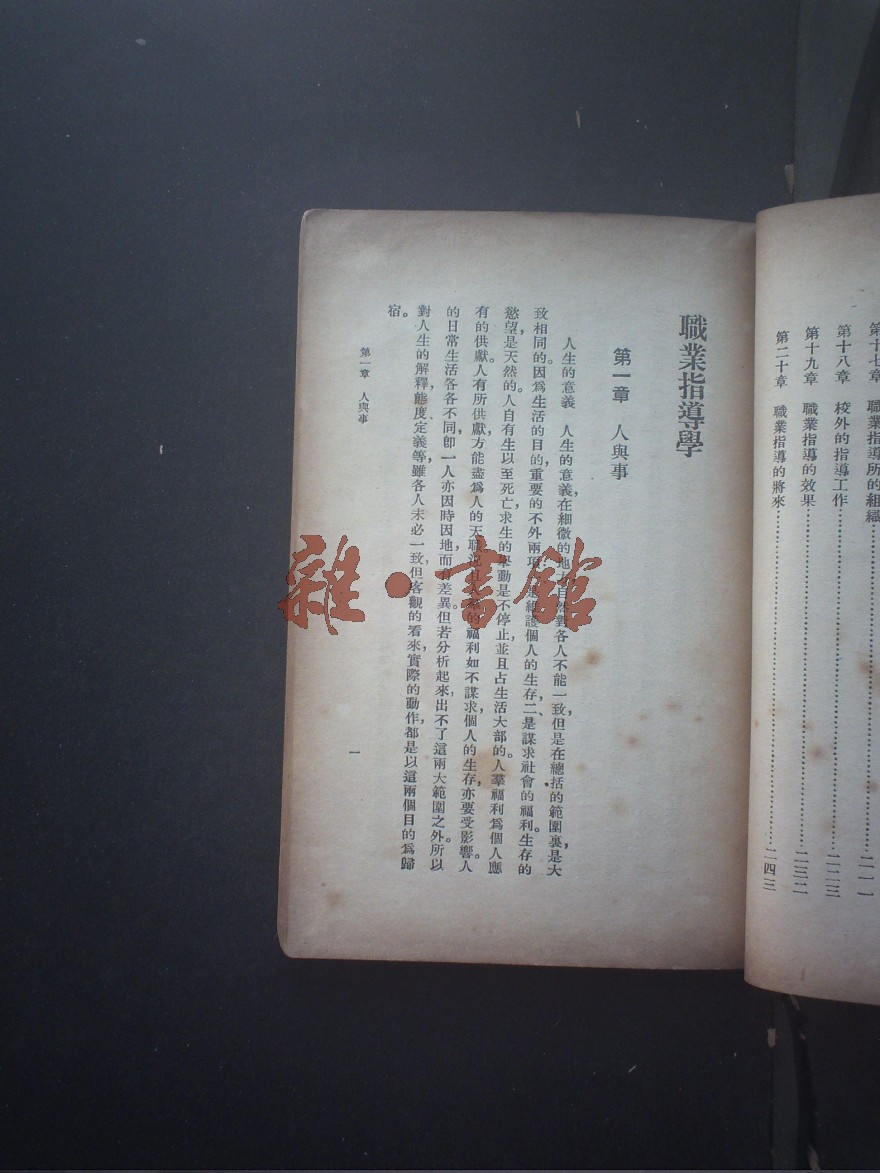 第十七章　職業指導所的組織……二一一
第十八章　校外的指導工作……二二三
第十九章　職業指導的效果……二三二
第二十章　職業指導的將來……二四三
職業指導學
第一章　人與事
人生的意義　人生的意義在細微的地方自然對各人不能一致，但是在總括的範圍裏，是大
致相同的。因爲生活的目的，重要的不外兩項：一是維護個人的生存，二是謀求社會的福利。生存的
慾望，是天然的。人自有生以至死亡，求生的舉動是不停止，並且占生活大部的。人羣福利爲個人應
有的供獻。人有所供獻，方能盡爲人的天職。況且人羣的福利如不謀求，個人的生存，亦要受影響。人
的日常生活各各不同，卽一人亦因時因地，而有差異。但若分析起來，出不了這兩大範圍之外。所以
對人生的解釋，態度、定義等，雖各人未必一致，但客觀的看來，實際的動作，都是以這兩個目的爲歸
宿。
第一章　人與事
一
雜·書館